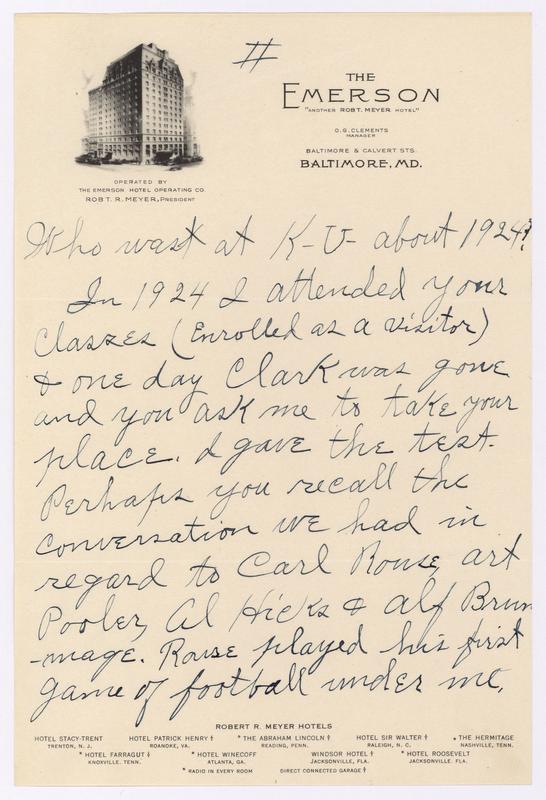 #
THE
EMERSON
"ANOTHER ROBT. MEYER HOTEL"
O.G. CLEMENTS
MANAGER
BALTIMORE & CALVERT STS.
BALTIMORE, MD.
OPERATED BY
THE EMERSON HOTEL OPERATING CO.
ROBT. R. MEYER, PRESIDENT
Who wast at K-U- about 1924?
In 1924 I attended your
classes (Enrolled as a visitor)
& one day Clark was gone
and you ask me to take your
place. I gave the test.
Perhaps you recall the
conversation we had in
regard to Carl Rouse, art
Pooler, Al Hicks & Alf Brum
-mage. Rouse played his first
game of football under me,
ROBERT R. MEYER HOTELS
HOTEL STACY-TRENT HOTEL PATRICK HENRY † * THE ABRAHAM LINCOLN † HOTEL SIR WALTER † * THE HERMITAGE
TRENTON, N. J. ROANOKE, VA. READING, PENN. RALEIGH, N. C. NASHVILLE, TENN.
* HOTEL FARRAGUT † * HOTEL WINECOFF WINDSOR HOTEL † * HOTEL ROOSEVELT
KNOXVILLE, TENN. ATLANTA, GA. JACKSONVILLE, FLA. JACKSONVILLE, FLA.
* RADIO IN EVERY ROOM DIRECT CONNECTED GARAGE †